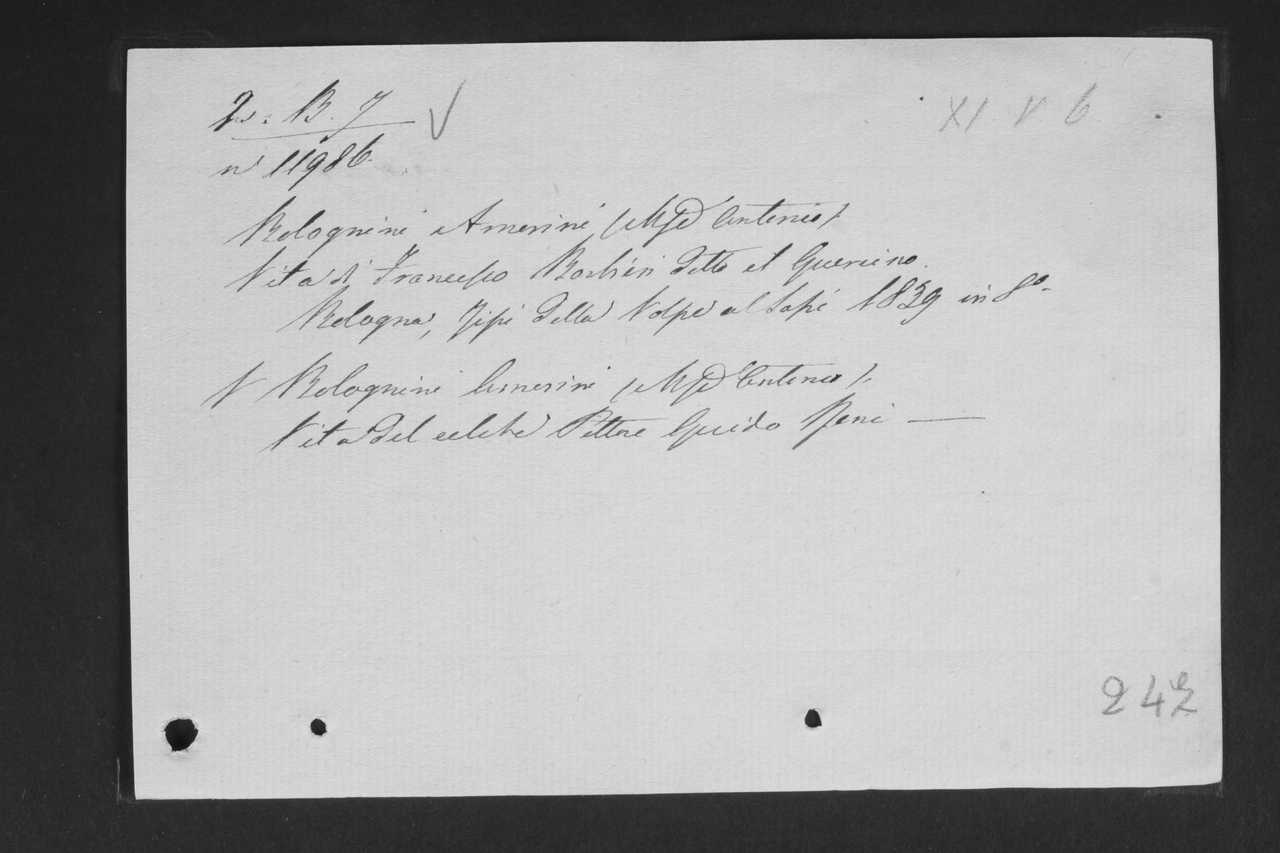 2a. B. 7 V XI V 6
n° 11986.
Bolognini Amorini (Mse Antonio).
Vita di Francesco Barbieri detto il Guercino.
Bologna, Tipi della Volpe al Sassi 1839 in 8°-
V Bolognini Amorini (Mse Antonio).
Vita del celebre Pittore Guido Reni —
242